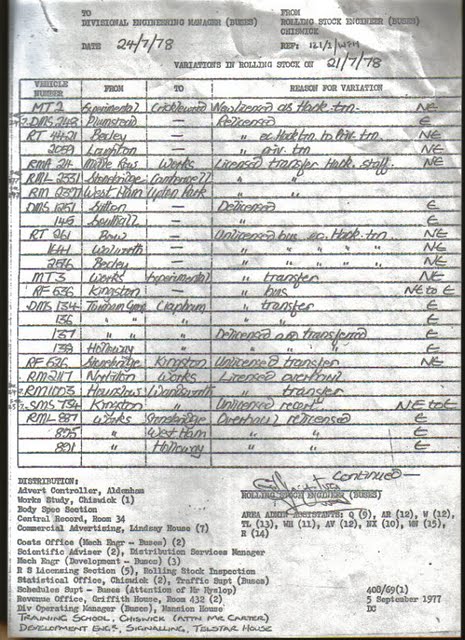 TO FROM
DIVISIONAL ENGINEERING MANAGER (BUSES) ROLLING STOCK ENGINEER (BUSES)
CHISWICK
DATE 24/7/78 REF: 121/2/WPM
VARIATIONS IN ROLLING STOCK ON 21/7/78
VEHICLE NUMBER FROM TO REASON FOR VARIATION
MT 2 Experimental Cricklewood Now licensed as Hack. trn. NE
DMS 248 Plumstead — Relicensed E
RT 4421 Bexley — " ex. Hack trn to Priv. trn NE
2059 Loughton — " priv. trn NE
RMA 24 Middle Row Works Licensed transfer Hack. staff. NE
RML 2331 Stonebridge " "
RM 2397 West Ham Upton Park " "
DMS 1251 Sutton — Delicensed E
145 — " E
RT 961 Bow — Unlicensed bus ex. Hack. trn NE
1641 Walworth — " " " " " NE
2576 Bexley — " " " " NE
MT 3 Works Experimental " transfer NE
RF 536 Kingston — " bus NE to E
DMS 134 Turnham Green Clapham " transfer E
136 " " " " E
137 " " Delicensed and transferred E
139 Holloway " " " E
RF 526 Stonebridge Kingston Unlicensed transfer NE
RM 2117 Norbiton Works Licensed overhaul
RM 1003 Hounslow Wandsworth " transfer
SMS 734 Kingston " Unlicensed recert NE to E
RML 887 Works Stonebridge Overhaul relicensed E
895 " West Ham " " E
891 " Holloway " " E
Continued—
DISTRIBUTION:
Advert Controller, Aldenham
Works Study, Chiswick (1)
Body Spec Section
Central Record, Room 34
Commercial Advertising, Lindsay House (7)
ROLLING STOCK ENGINEER (BUSES)
AREA ADMIN ASSISTANTS: Q (9), AR (12), W (12),
TL (13), WH (11), AV (12), HX (10), WN (15),
R (14)
Costs Office (Mech Engr - Buses) (2)
Scientific Adviser (2), Distribution Services Manager
Mech Engr (Development - Buses) (3)
R S Licensing Section (5), Rolling Stock Inspection
Statistical Office, Chiswick (2), Traffic Supt (Buses)
Schedules Supt - Buses (Attention of Mr Hyslop) 408/69(1)
Revenue Office, Griffith House, Room 432 (2) 5 September 1977
Div Operating Manager (Buses), Mansion House DC
TRAINING SCHOOL, CHISWICK (ATTN MR CARTER)
DEVELOPMENT ENG'S, SIGNALLING, TELSTAR HOUSE